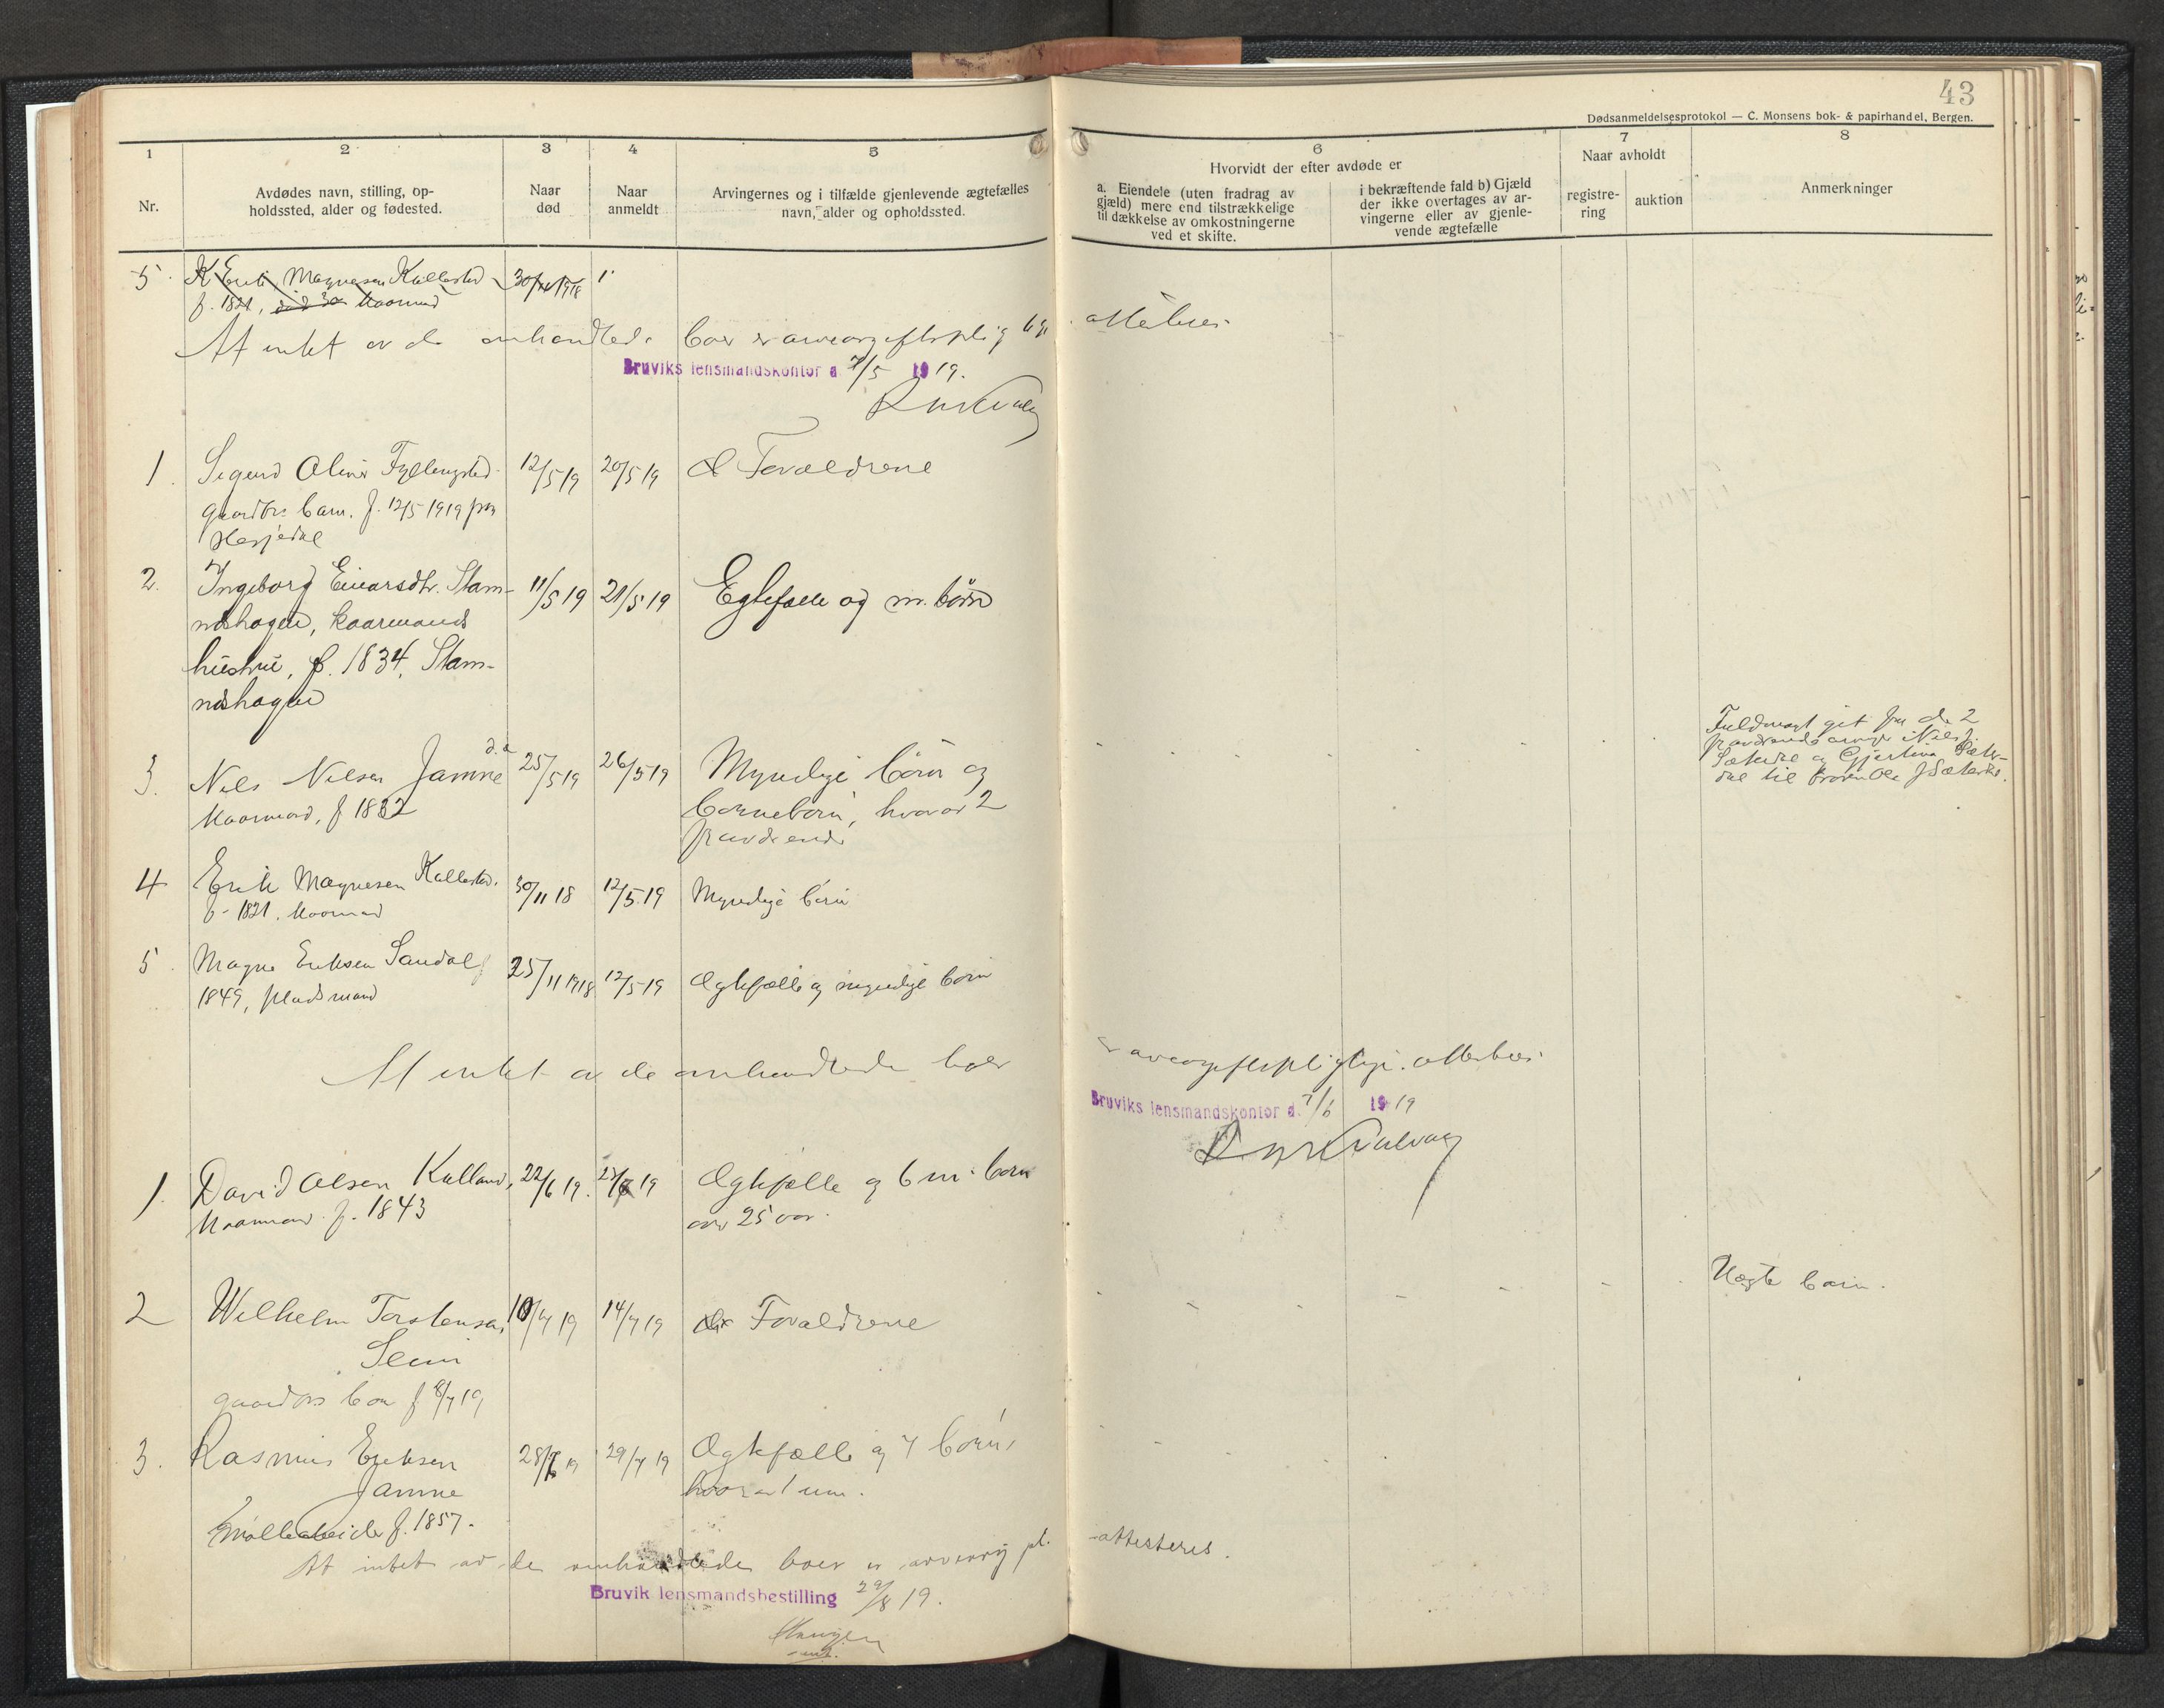 43
Dødsanmeldelsesprotokol — C. Monsens bok- & papirhandel, Bergen.
1
2
3
4
5
6
7
8
Nr.
Avdødes navn, stilling, op-
holdssted, alder og fødested.
Naar
død
Naar
anmeldt
Arvingernes og i tilfælde gjenlevende ægtefælles
navn, alder og opholdssted.
Hvorvidt der efter avdøde er
a. Eiendele (uten fradrag av
gjæld) mere end tilstrækkelige
til dækkelse av omkostningerne
ved et skifte.
i bekræftende fald b) Gjæld
der ikke overtages av ar-
vingerne eller av gjenle-
vende ægtefælle
Naar avholdt
registre-
ring
auktion
Anmerkninger
5. Erik Magnesen Kallestad 30/11 1918
f. 1821, Kaarmand
At intet av de omhandlede boer er arveavgiftspligtige attesteres
Bruviks lensmandskontor d. 7/5 1919.
1. Sigurd Oliver 12/5 19 20/5 19 Forældrene
gaardbr. barn. f. 12/5 1919 paa
Hesjedal
2. Ingeborg Einarsdtr. Stam- 11/5 19 21/5 19 Egtefælle og m. børn
neshagen, kaarmands
hustru, f. 1834, Stam-
neshagen
3. Nils Nilsen Jamne d.æ 25/5 19 26/5 19 Myndige børn og
Kaarmand, f 1832 børnebørn, hvorav 2
fraværende
Fuldmagt git fra de 2
fraværende arvinger Nils J.
Sæterdal og Gjertina Sæter-
dal til broren Ole J Sæterdal.
4 Erik Magnesen Kallestad. 30/11 18 12/5 19 Myndige børn
f. 1821. Kaarmand
5. Magne Eriksen Sandal f 25/11 1918 12/5 19 Ægtefælle og myndige børn
1849, pladsmand
At intet av de omhandlede boer er arveavgiftspligtige attesteres.
Bruviks lensmandskontor d. 7/6 1919
1. David Olsen Kalland, 22/6 19. 23/6 19 Ægtefælle og 6 m. børn
Kaarmand f. 1843 over 25 aar.
2 Wilhelm Torstensen 10/7 19 14/7 19 Forældrene
gaardbrs barn f 8/7 19
Uegte barn.
3. Rasmus Eriksen 28/7 19 29/7 19 Ægtefælle og 7 børn,
Jamne hvorav 1 um.
Møllearbeider f. 1857.
At intet av de omhandlede boer er arveavg pl. attesteres.
Bruvik lensmandsbestilling 29/8 19.